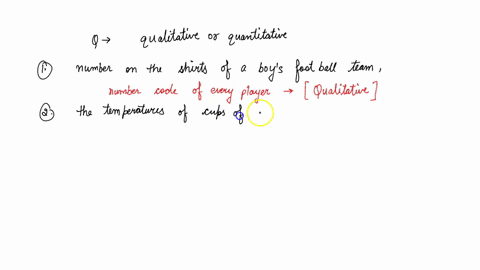 Q → qualitative or quantitative
① number on the shirts of a boy's foot ball team,
number code of every player → [Qualitative]
② the temperatures of cups of